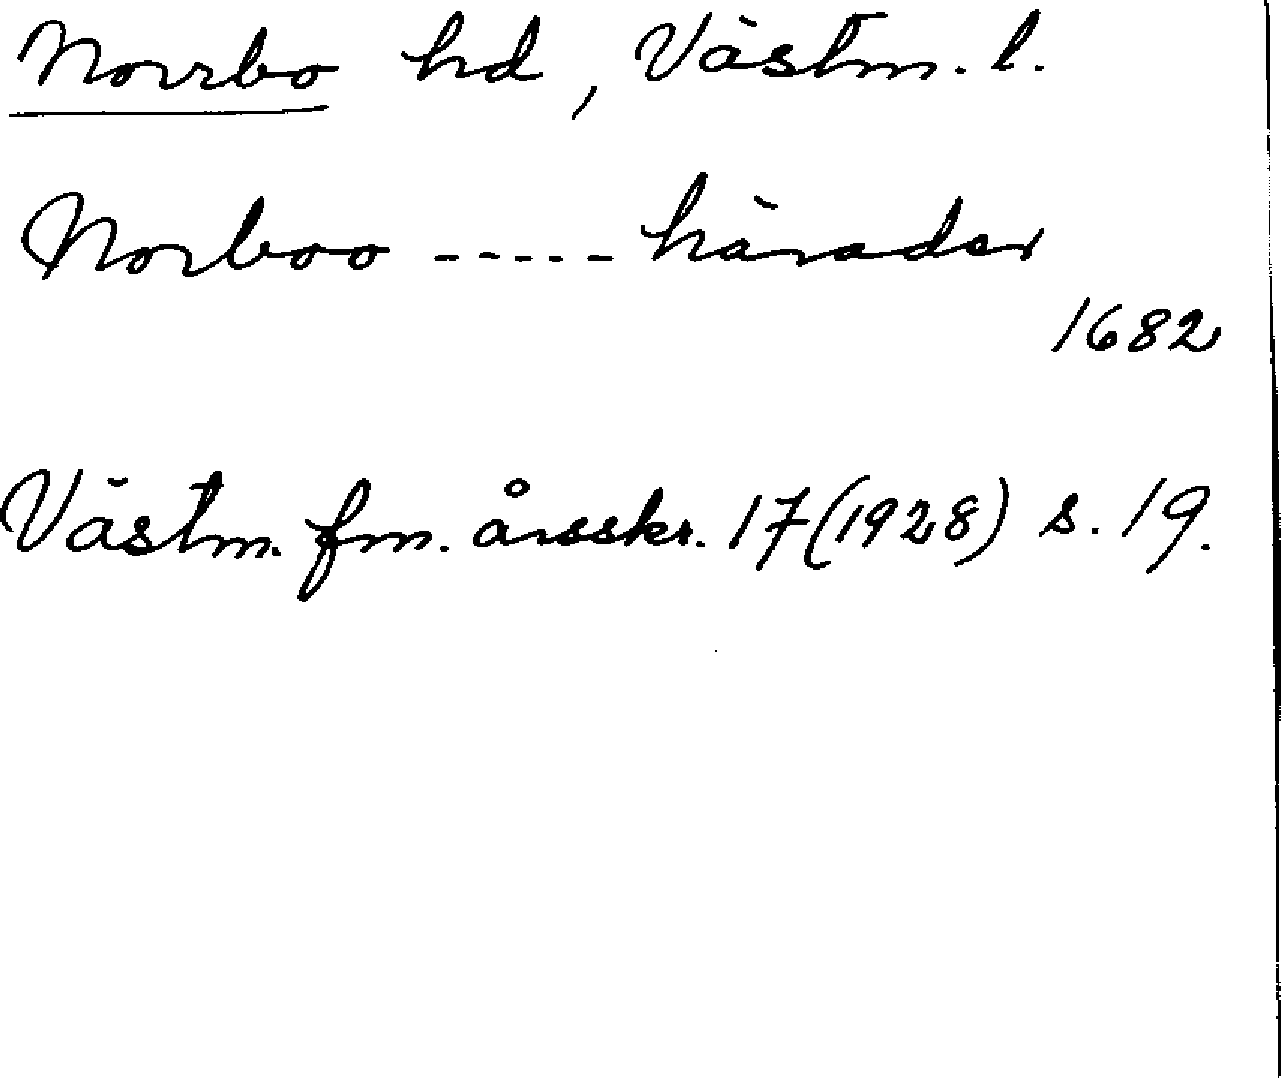 Norrbo hd, Västm. l.
Norboo ----- härader
1682
Västm. fm. årsskr. 17 (1928) s. 19.